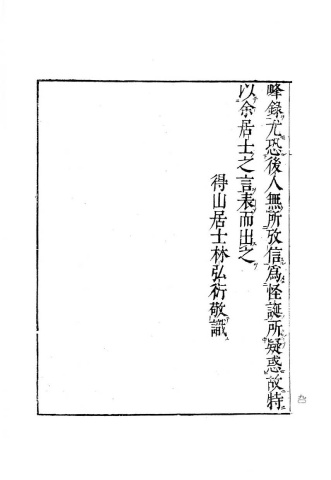 峰錄尤恐後人無所攷信爲怪誕所疑惑故特
以余居士之言表而出之
得山居士林弘衍敬識